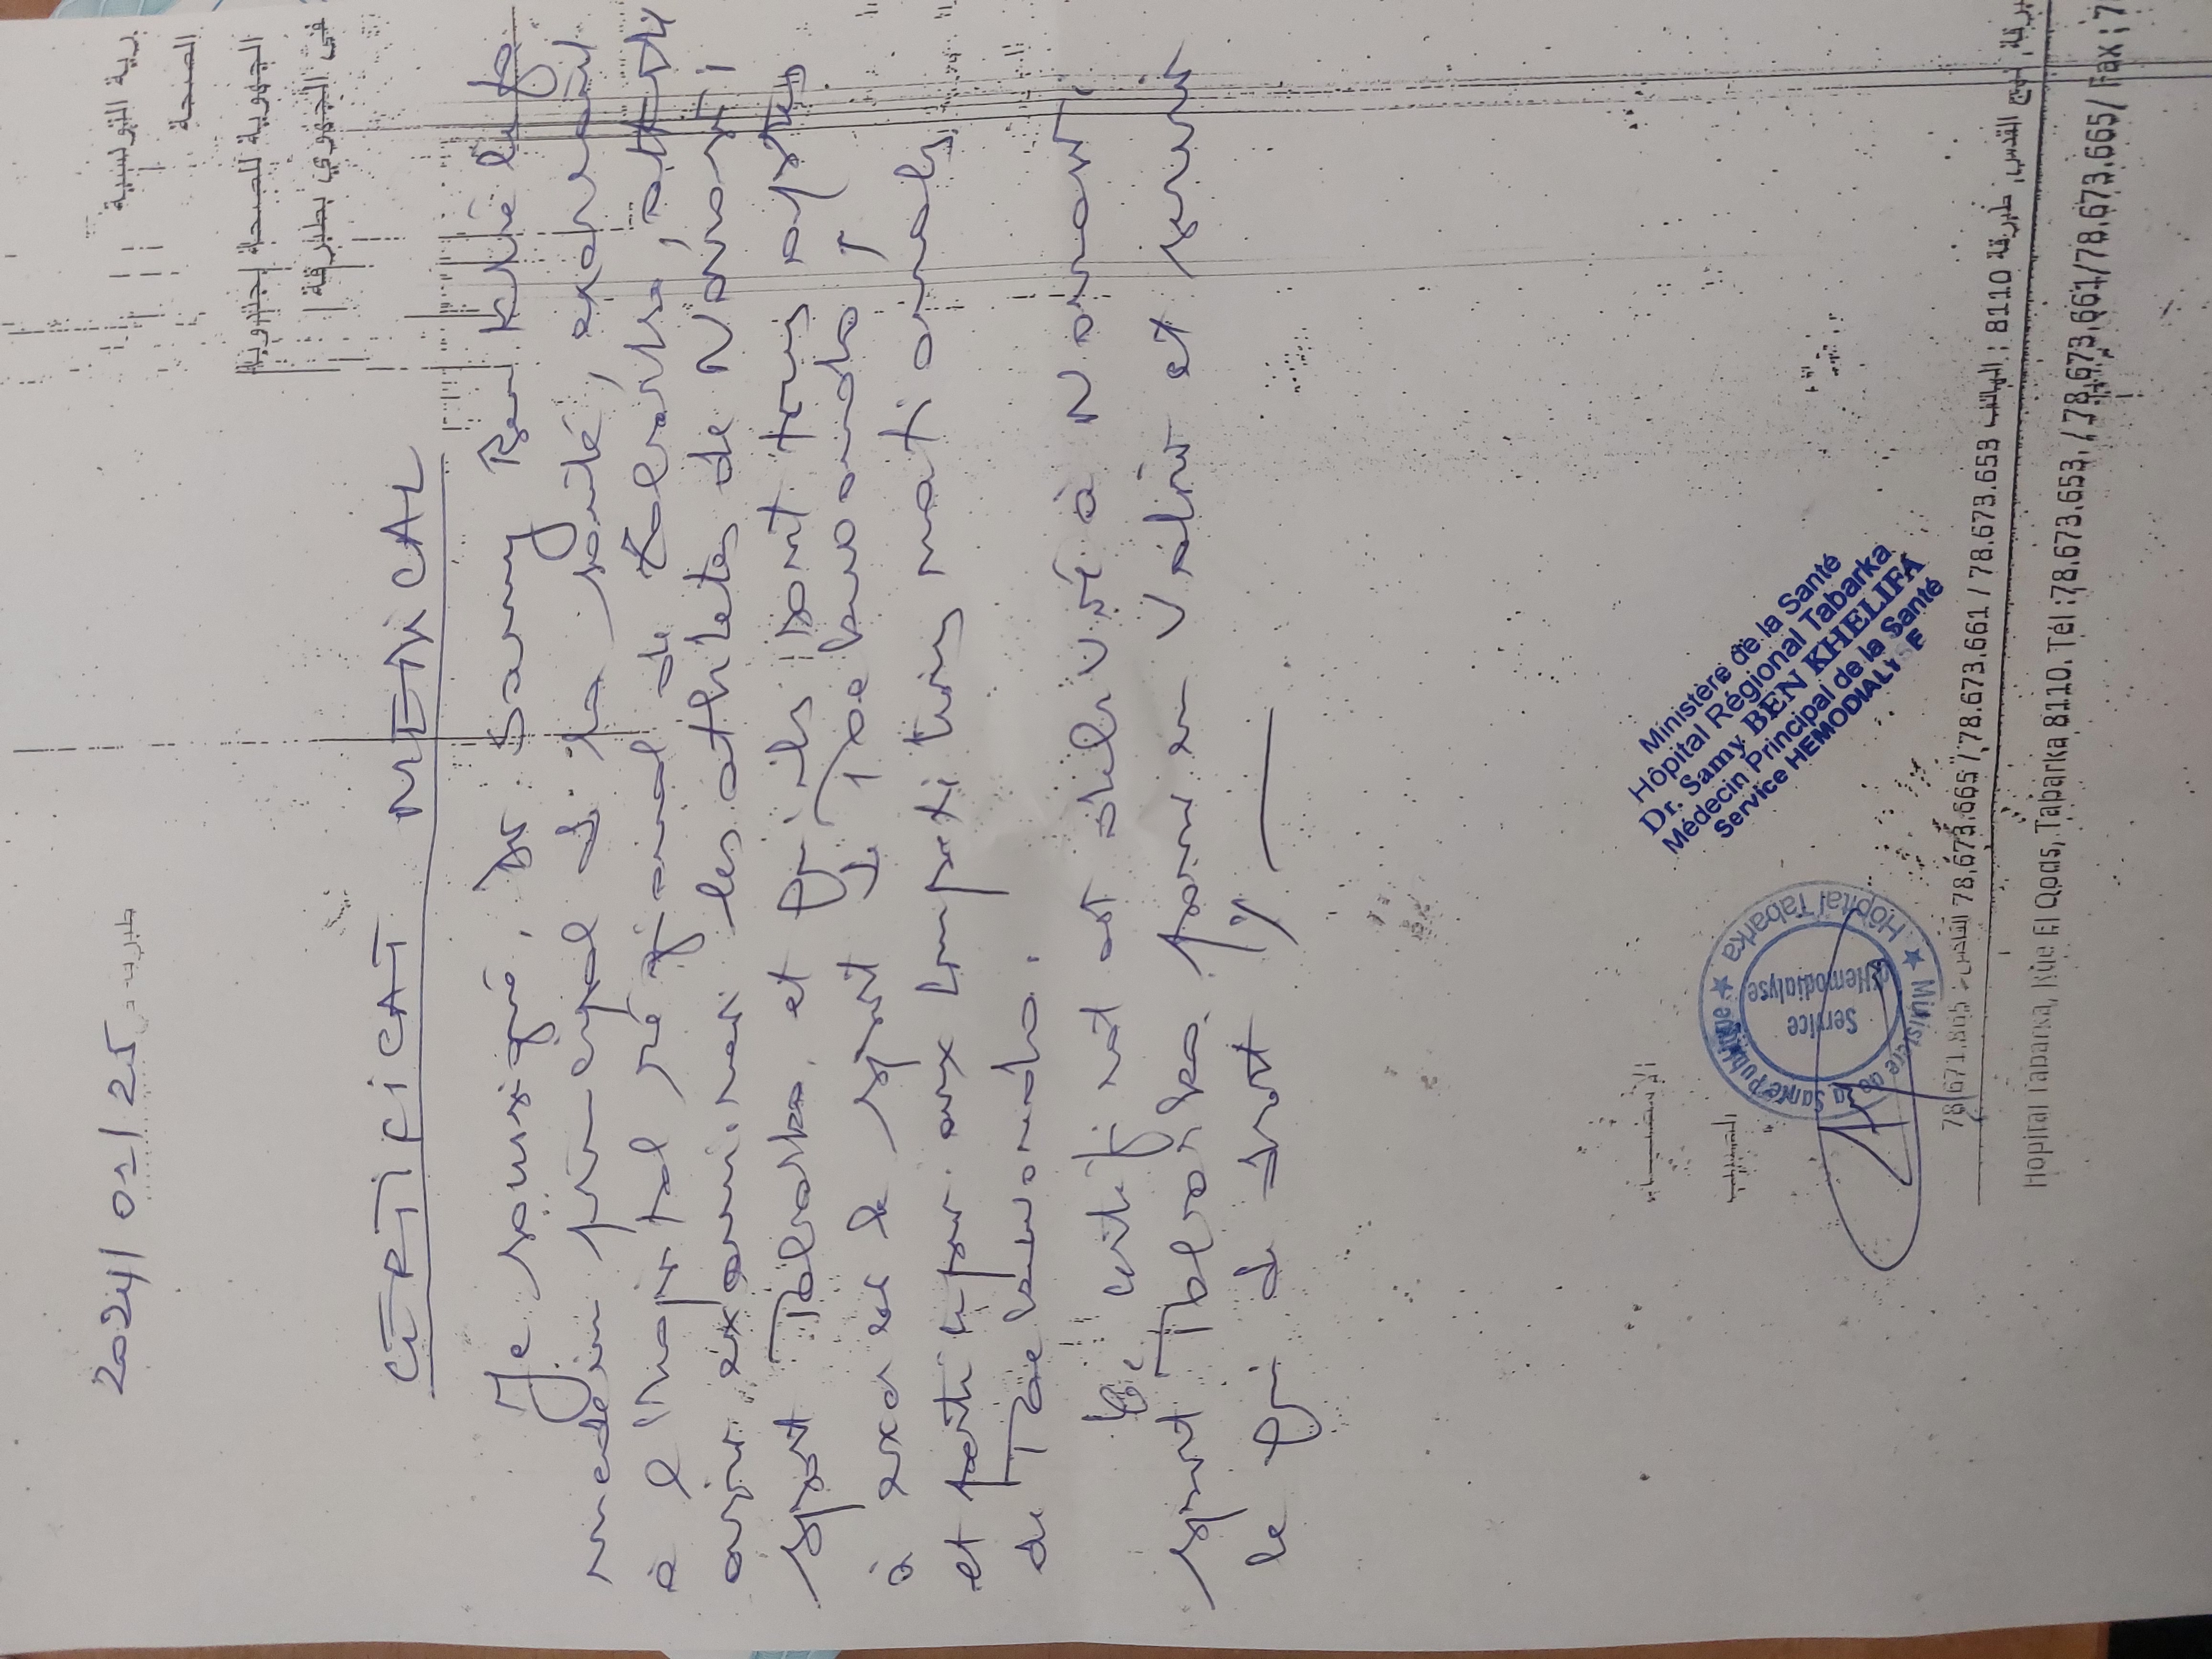 الصحة
الجهورية للصحة بجندوبة
طبرقة في
2024/01/25
CERTIFICAT MEDICAL
Je soussigné, Dr Samy Ben Khélifa
medecin principal de la santé, exerçant
à l'hopital régional de Tabarka, atteste
avoir examiner les athlètes de
sport Tabarka. et qu'ils sont tous aptes
à exercer le sport de Taekwondo
et participer aux compétitions nationales
de Taekwondo.
Ce certificat est délivré à
sport Tabarka. pour en valoir et servir
ce que de droit
Ministère de la Santé
Hôpital Régional Tabarka
Dr. Samy BEN KHELIFA
Médecin Principal de la Santé
Service HEMODIALYSE
Ministère de la Santé Publique ★ Hôpital Tabarka ★
Service
d'Hemodialyse
نهج القدس، طبرقة 8110 : الهاتف 78.673.653 / 78.673.661 / 78.673.665 / الفاكس: 78.671.805
Hopital Tabarka, Rue El Qods, Tabarka 8110. Tél :78.673.653, / 78.673.661/78.673.665/ Fax : 7